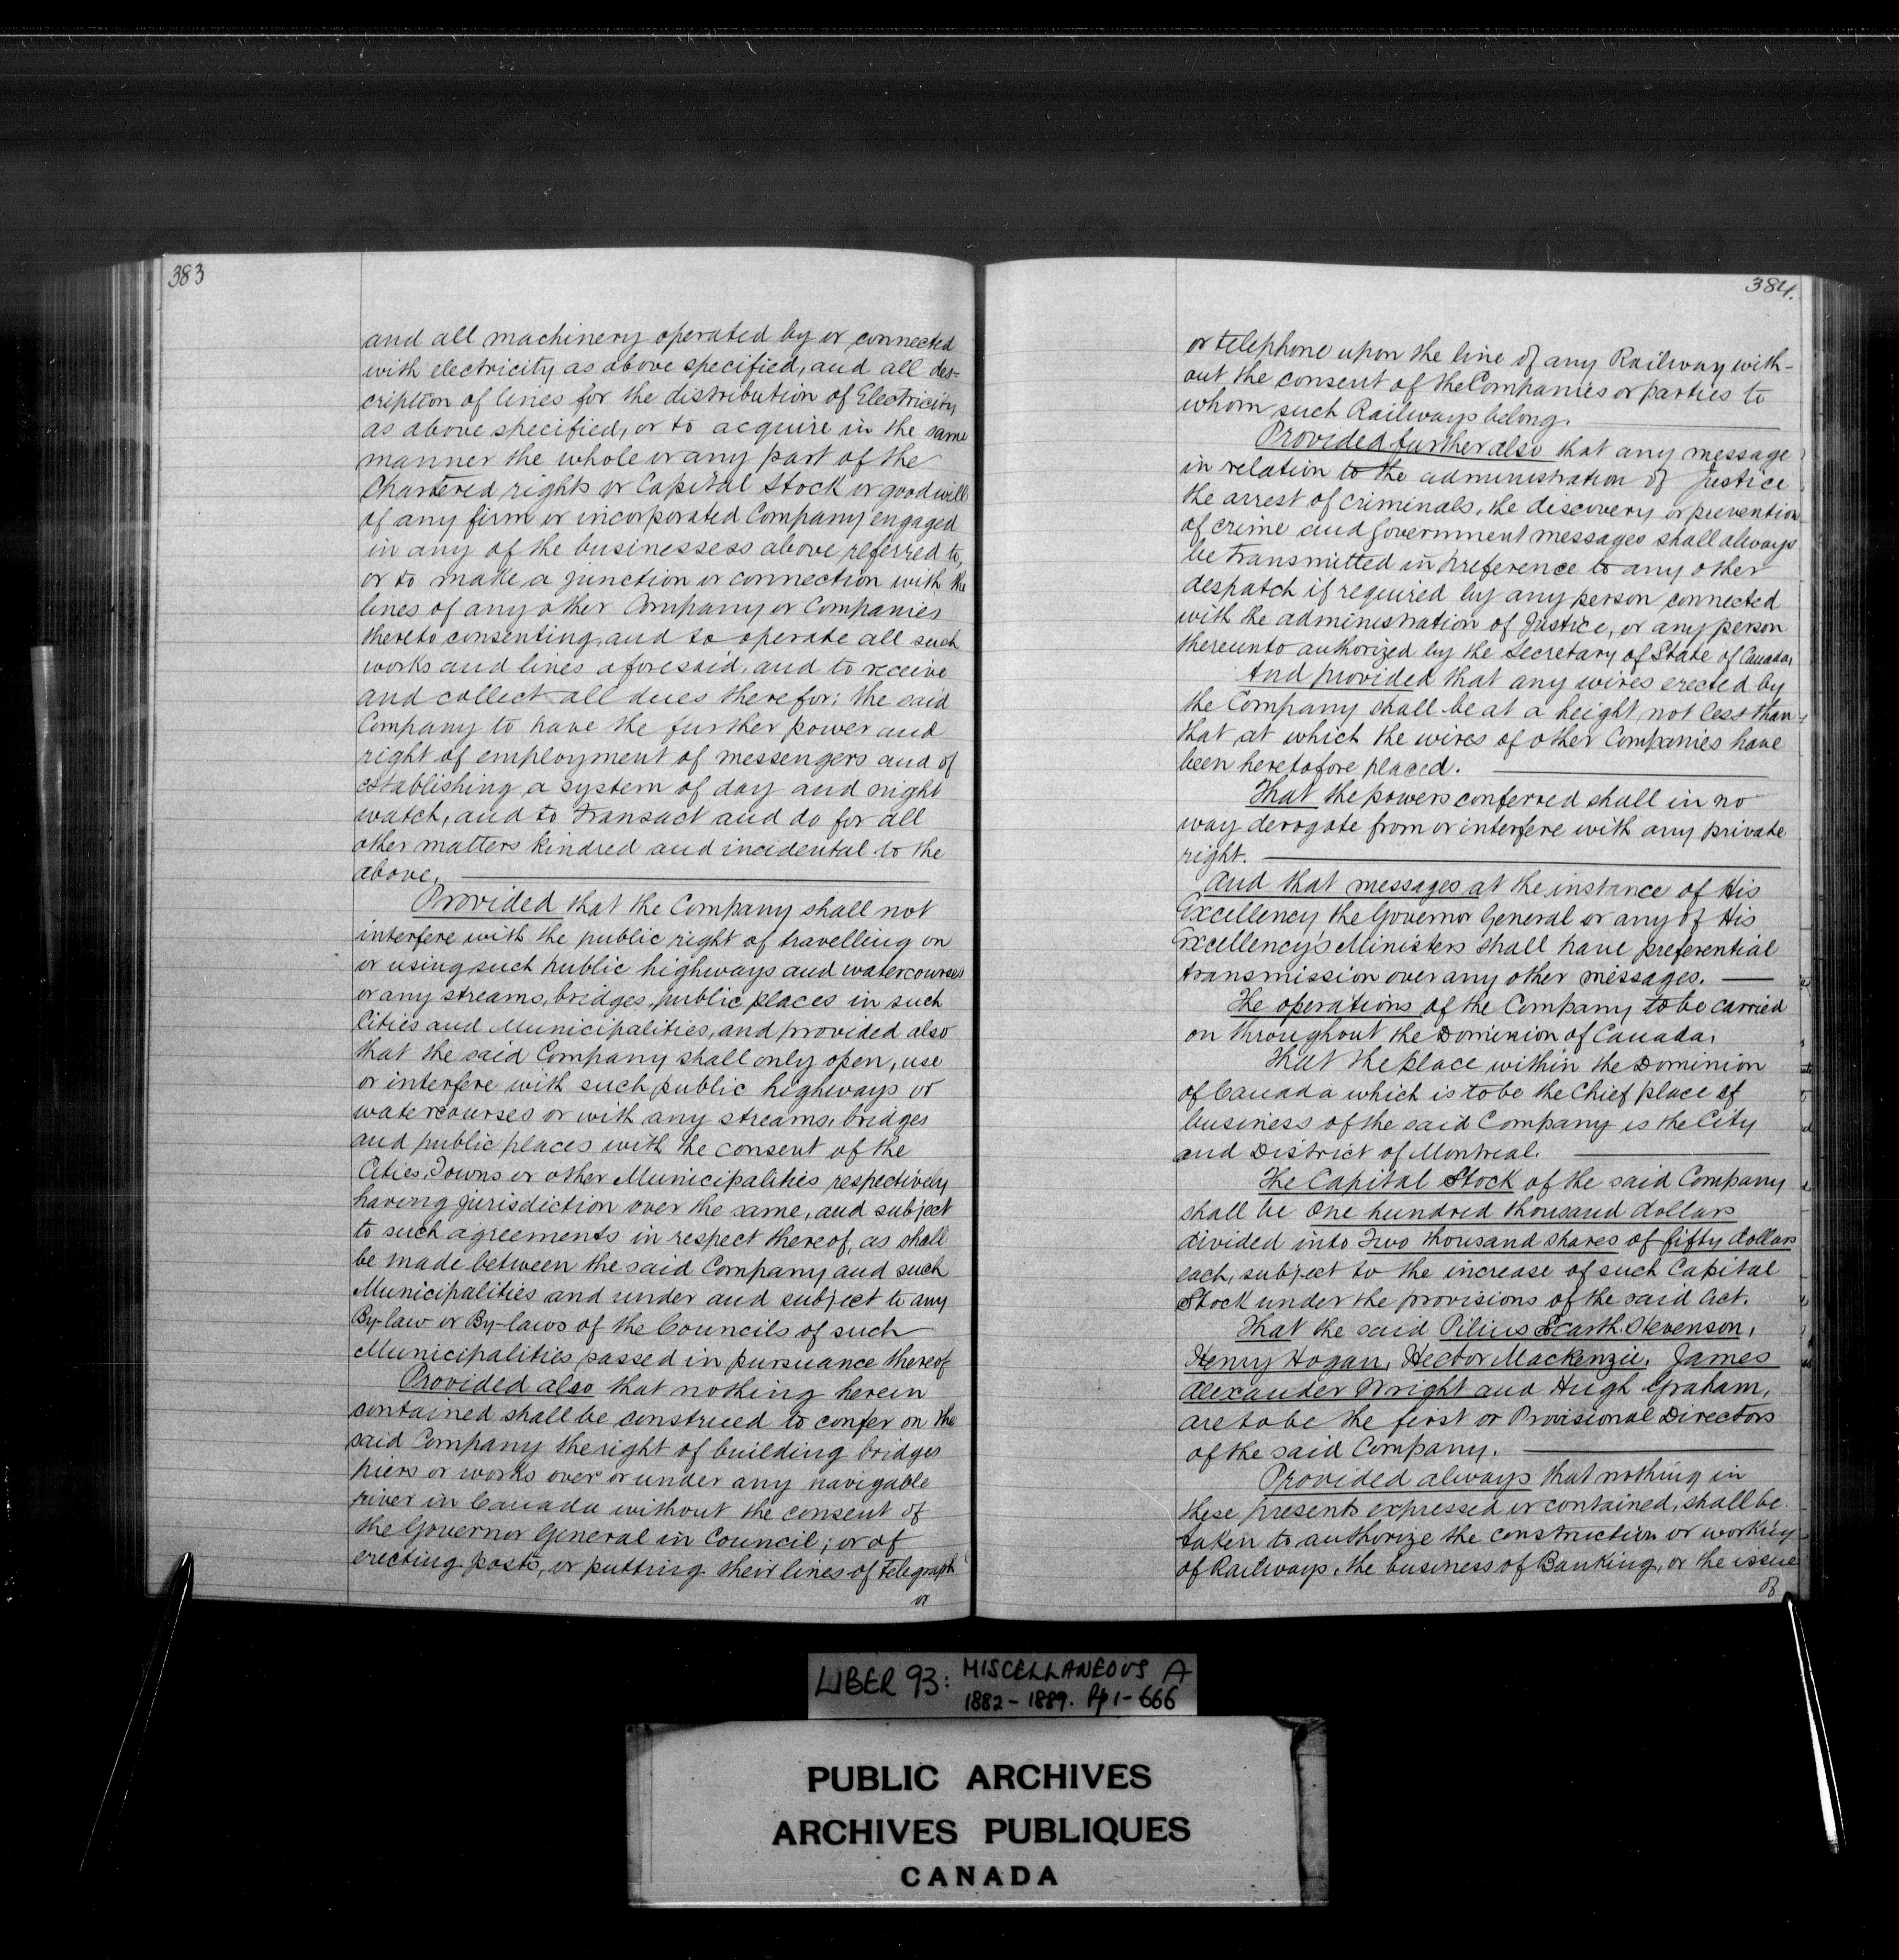 383
and all machinery operated by or connected
with electricity as above specified, and all des-
cription of lines for the distribution of Electricity
as above specified, or to acquire in the same
manner the whole or any part of the
Chartered rights or Capital Stock or goodwill
of any firm or incorporated Company engaged
in any of the businessess above referred to,
or to make a junction or connection with the
lines of any other Company or Companies
thereto consenting, and to operate all such
works and lines aforesaid, and to receive
and collect all dues therefor; the said
Company to have the further power and
right of employment of messengers and of
establishing a system of day and night
watch, and to transact and do for all
other matters kindred and incidental to the
above.
Provided that the Company shall not
interfere with the public right of travelling on
or using such public highways and watercourses
or any streams, bridges, public places in such
Cities and Municipalities, and provided also
that the said Company shall only open, use
or interfere with such public highways or
watercourses or with any streams, bridges
and public places with the consent of the
Cities, Towns or other Municipalities respectively
having jurisdiction over the same, and subject
to such agreements in respect thereof, as shall
be made between the said Company and such
Municipalities and under and subject to any
By-law or By-laws of the Councils of such
Municipalities passed in pursuance thereof
Provided also that nothing herein
contained shall be construed to confer on the
said Company the right of building bridges
piers or works over or under any navigable
river in Canada without the consent of
the Governor General in Council; or of
erecting posts, or putting their lines of telegraph
or
384.
or telephone upon the line of any Railway with-
out the consent of the Companies or parties to
whom such Railways belong.
Provided further also that any message
in relation to the administration of Justice
the arrest of criminals, the discovery or prevention
of crime and Government messages shall always
be transmitted in preference to any other
despatch if required by any person connected
with the administration of Justice, or any person
thereunto authorized by the Secretary of State of Canada,
And provided that any wires erected by
the Company shall be at a height not less than
that at which the wires of other Companies have
been heretofore placed.
That the powers conferred shall in no
way derogate from or interfere with any private
right.
And that messages at the instance of His
Excellency the Governor General or any of His
Excellency's Ministers shall have preferential
transmission over any other messages.
The operations of the Company to be carried
on throughout the Dominion of Canada.
That the place within the Dominion
of Canada which is to be the Chief place of
business of the said Company is the City
and District of Montreal.
The Capital Stock of the said Company
shall be One hundred thousand dollars
divided into Two thousand shares of fifty dollars
each, subject to the increase of such Capital
Stock under the provisions of the said Act.
That the said Pilius Scarth Stevenson,
Henry Hogan, Hector Mackenzie, James
Alexander Wright and Hugh Graham,
are to be the first or Provisional Directors
of the said Company.
Provided always that nothing in
these presents expressed or contained, shall be
taken to authorize the construction or working
of Railways, the business of Banking, or the issue
of
LIBER 93: MISCELLANEOUS A
1882-1889. Pp 1-666
PUBLIC ARCHIVES
ARCHIVES PUBLIQUES
CANADA